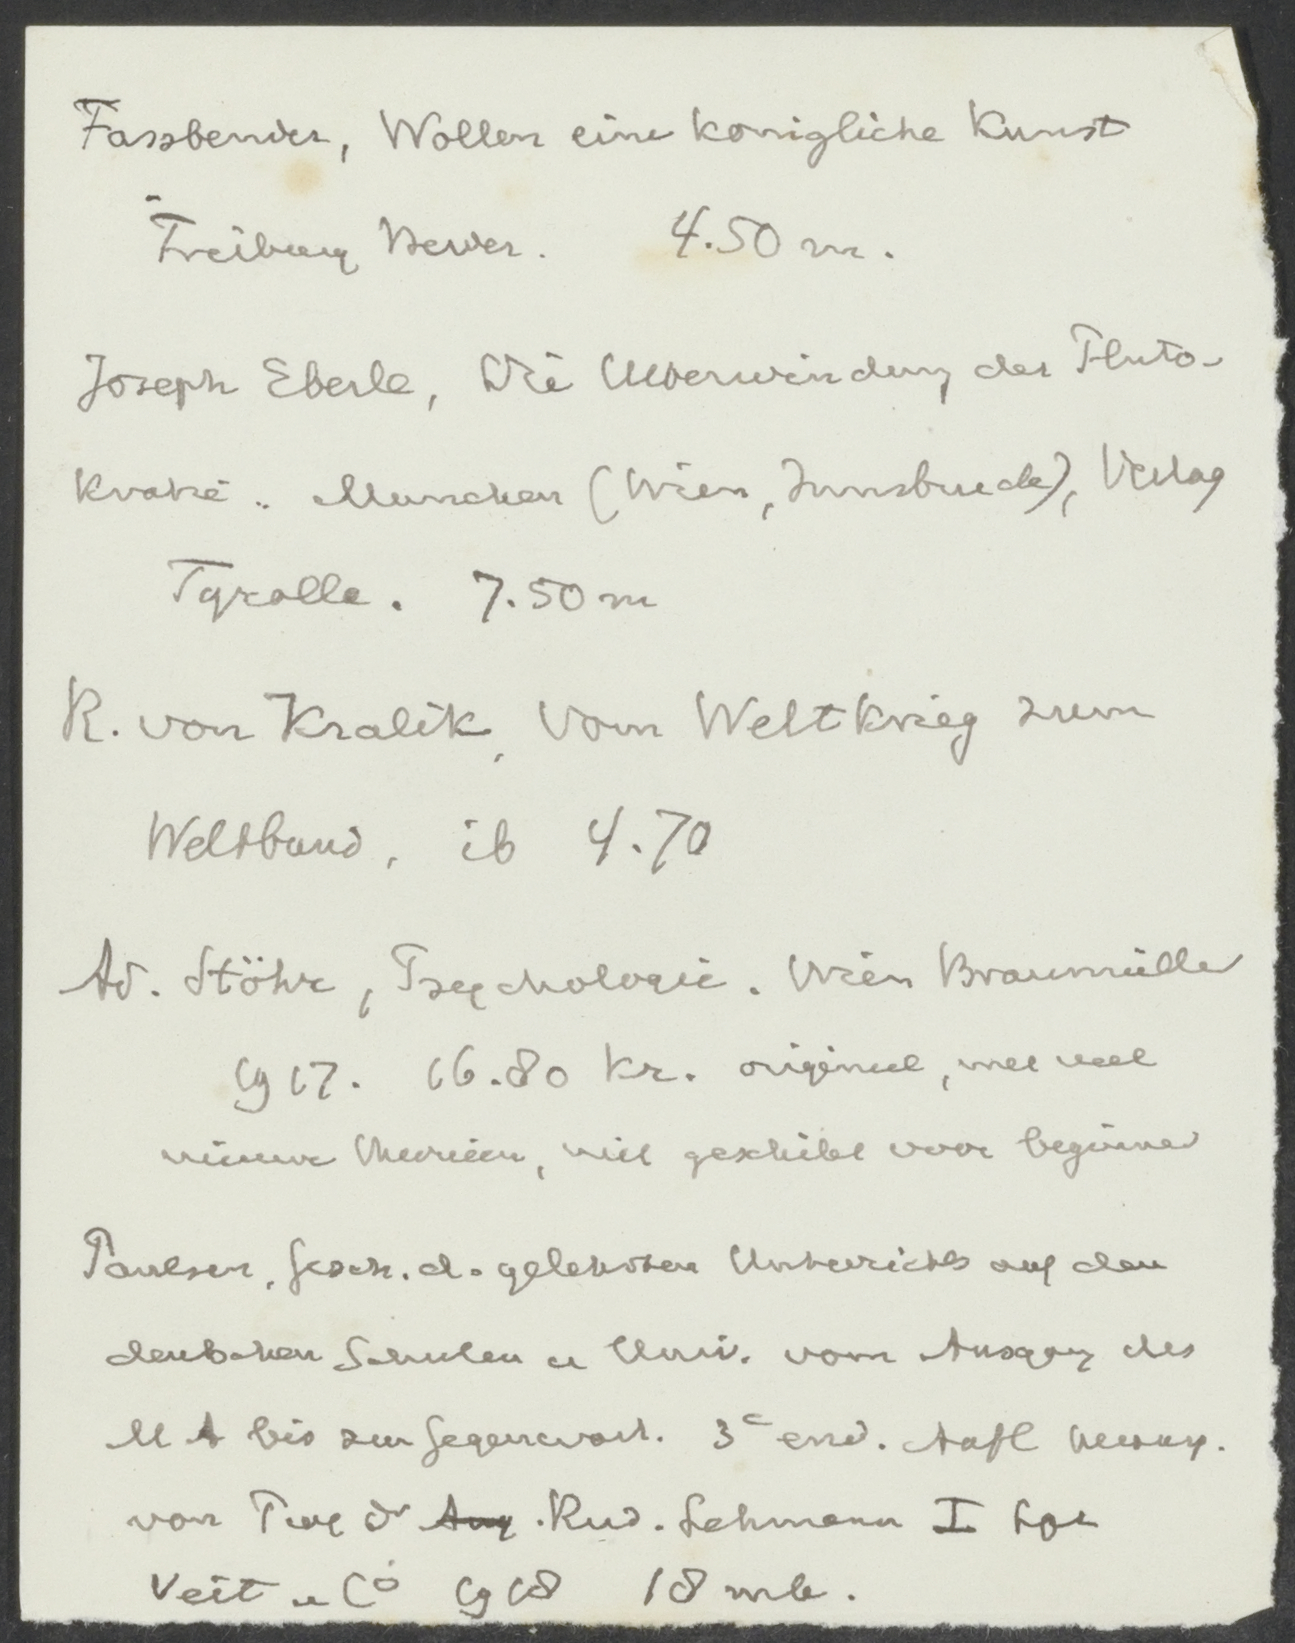 Fassbender, Wollen eine königliche Kunst
Freiburg Herder. 4.50 m.
Joseph Eberle, Die Überwindung der Pluto-
kratie. München (Wien, Innsbruck), Verlag
Tyrolia. 7.50 m
R. von Kralik, Vom Weltkrieg zum
Weltbund, ib 4.70
Ad. Stöhr, Psychologie. Wien Braumüller
1917. 16.80 Kr. origineel, met veel
nieuwe theorieën, niet geschikt voor beginner
Paulsen, Gesch. d. gelehrten Unterrichts auf den
deutschen Schulen u Univ. vom Ausgang des
M A bis zur Gegenwart. 3e erw. Aufl herausg.
von Prof Dr Aug. Rud. Lehmann I Lpz
Veit u Co 1918 18 mk.